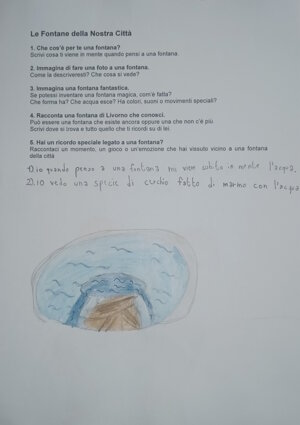 Le Fontane della Nostra Città
1. Che cos'è per te una fontana?
Scrivi cosa ti viene in mente quando pensi a una fontana.
2. Immagina di fare una foto a una fontana.
Come la descriveresti? Che cosa si vede?
3. Immagina una fontana fantastica.
Se potessi inventare una fontana magica, com'è fatta?
Che forma ha? Che acqua esce? Ha colori, suoni o movimenti speciali?
4. Racconta una fontana di Livorno che conosci.
Può essere una fontana che esiste ancora oppure una che non c'è più.
Scrivi dove si trova e tutto quello che ti ricordi su di lei.
5. Hai un ricordo speciale legato a una fontana?
Raccontaci un momento, un gioco o un'emozione che hai vissuto vicino a una fontana
della città
1) io quando penso a una fontana mi viene subito in mente l'acqua.
2) io vedo una specie di cerchio fatto di marmo con l'acqua